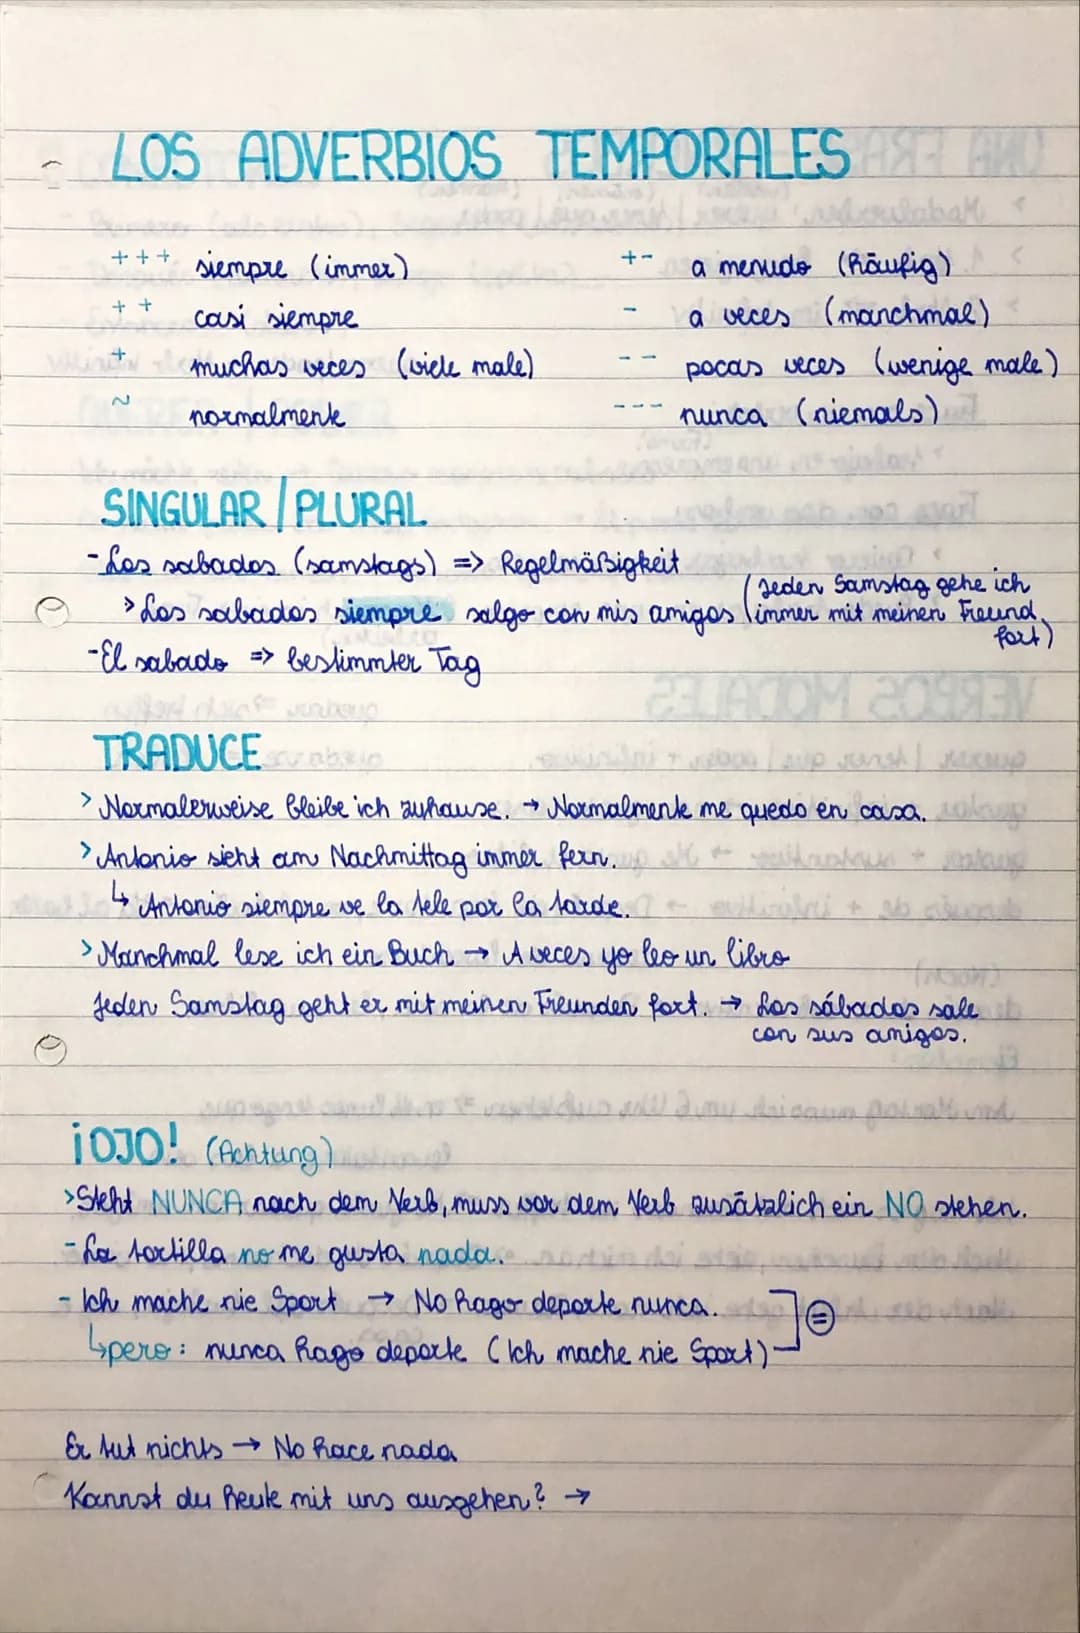 LOS ADVERBIOS TEMPORALES
+++ siempre (immer)
++ casi siempre
+ muchas veces (viele male)
~ normalmente
+- a menudo (häufig)
- a veces (manchmal)
-- pocas veces (wenige male)
--- nunca (niemals)
SINGULAR / PLURAL
- Los sabados (samstags) => Regelmäßigkeit
> Los sabados siempre salgo con mis amigos (Jeden Samstag gehe ich
immer mit meinen Freund.
fort)
- El sabado => bestimmter Tag
TRADUCE
> Normalerweise bleibe ich zuhause. → Normalmente me quedo en casa.
> Antonio sieht am Nachmittag immer fern.
↳ Antonio siempre ve la tele por la tarde.
> Manchmal lese ich ein Buch → A veces yo leo un libro
Jeden Samstag geht er mit meinen Freunden fort. → Los sábados sale
con sus amigos.
¡OJO! (Achtung)
> Steht NUNCA nach dem Verb, muss vor dem Verb zusätzlich ein NO stehen.
- La tortilla no me gusta nada.
- Ich mache nie Sport → No hago deporte nunca.
=
↳ pero: nunca hago deporte (Ich mache nie Sport)
Er tut nichts → No hace nada
Kannst du heute mit uns ausgehen? →